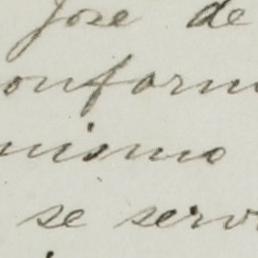 Jose de
onform
mismo
se serv